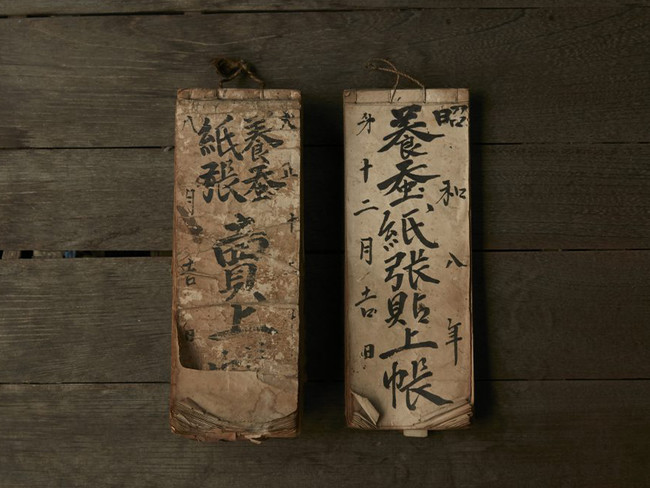 昭和八年
養蚕紙張貼上帳
十二月吉日
大正十
養蚕
紙張
賣上
八月吉日